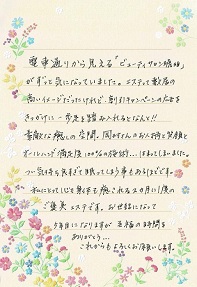 電車通りから見える「ビューティサロン
がずっと気になっていました。エステって敷居の
高いイメージだったけれど、割引キャンペーンの広告を
きっかけに一歩足を踏み入れるとなんと!!
素敵な癒しの空間、岡村さんのお人柄と笑顔と
オールハンド満足度100%の施術…はまってしまいました。
つい気持ち良すぎて眠ってしまう事もあるほどです。
私にとって心と身も癒される2ヶ月に1度の
ご褒美エステです。お世話になって
5年目になりますが至福の時間を
ありがとう…
これからもよろしくお願いします。